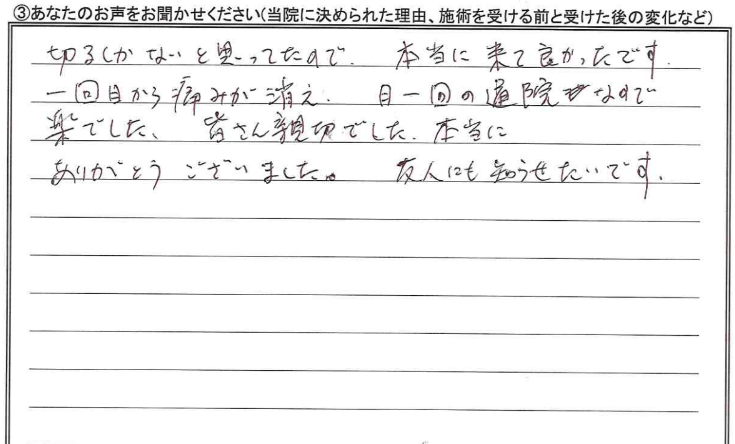 ③あなたのお声をお聞かせください(当院に決められた理由、施術を受ける前と受けた後の変化など)
切るしかないと思ってたので、本当に来て良かったです。
一回目から痛みが消え、月一回の通院なので
楽でした、皆さん親切でした。本当に
ありがとうございました。友人にも知らせたいです。